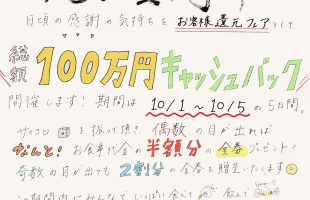 日頃の感謝の気持ちを お客様還元フェアとして、
総額 100万円 キャッシュバック
開催します! 期間は 10/1〜10/5 の5日間。
サイコロ を振って頂き 偶数の目が出れば
なんと! お食事代金の半額分の金券プレゼント!
奇数の目が出ても 2割分の金券を贈呈いたします
この期間内にみんなでいっぱい食べて 飲んで